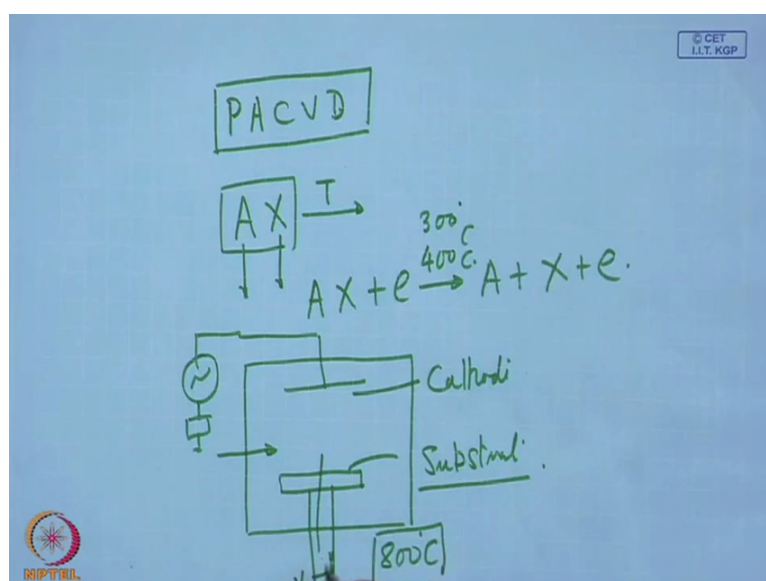 © CET
I.I.T. KGP
PACVD
AX T
300°C
400°C.
AX + e → A + X + e.
Cathodi
Substrat.
800°C
NPTEL